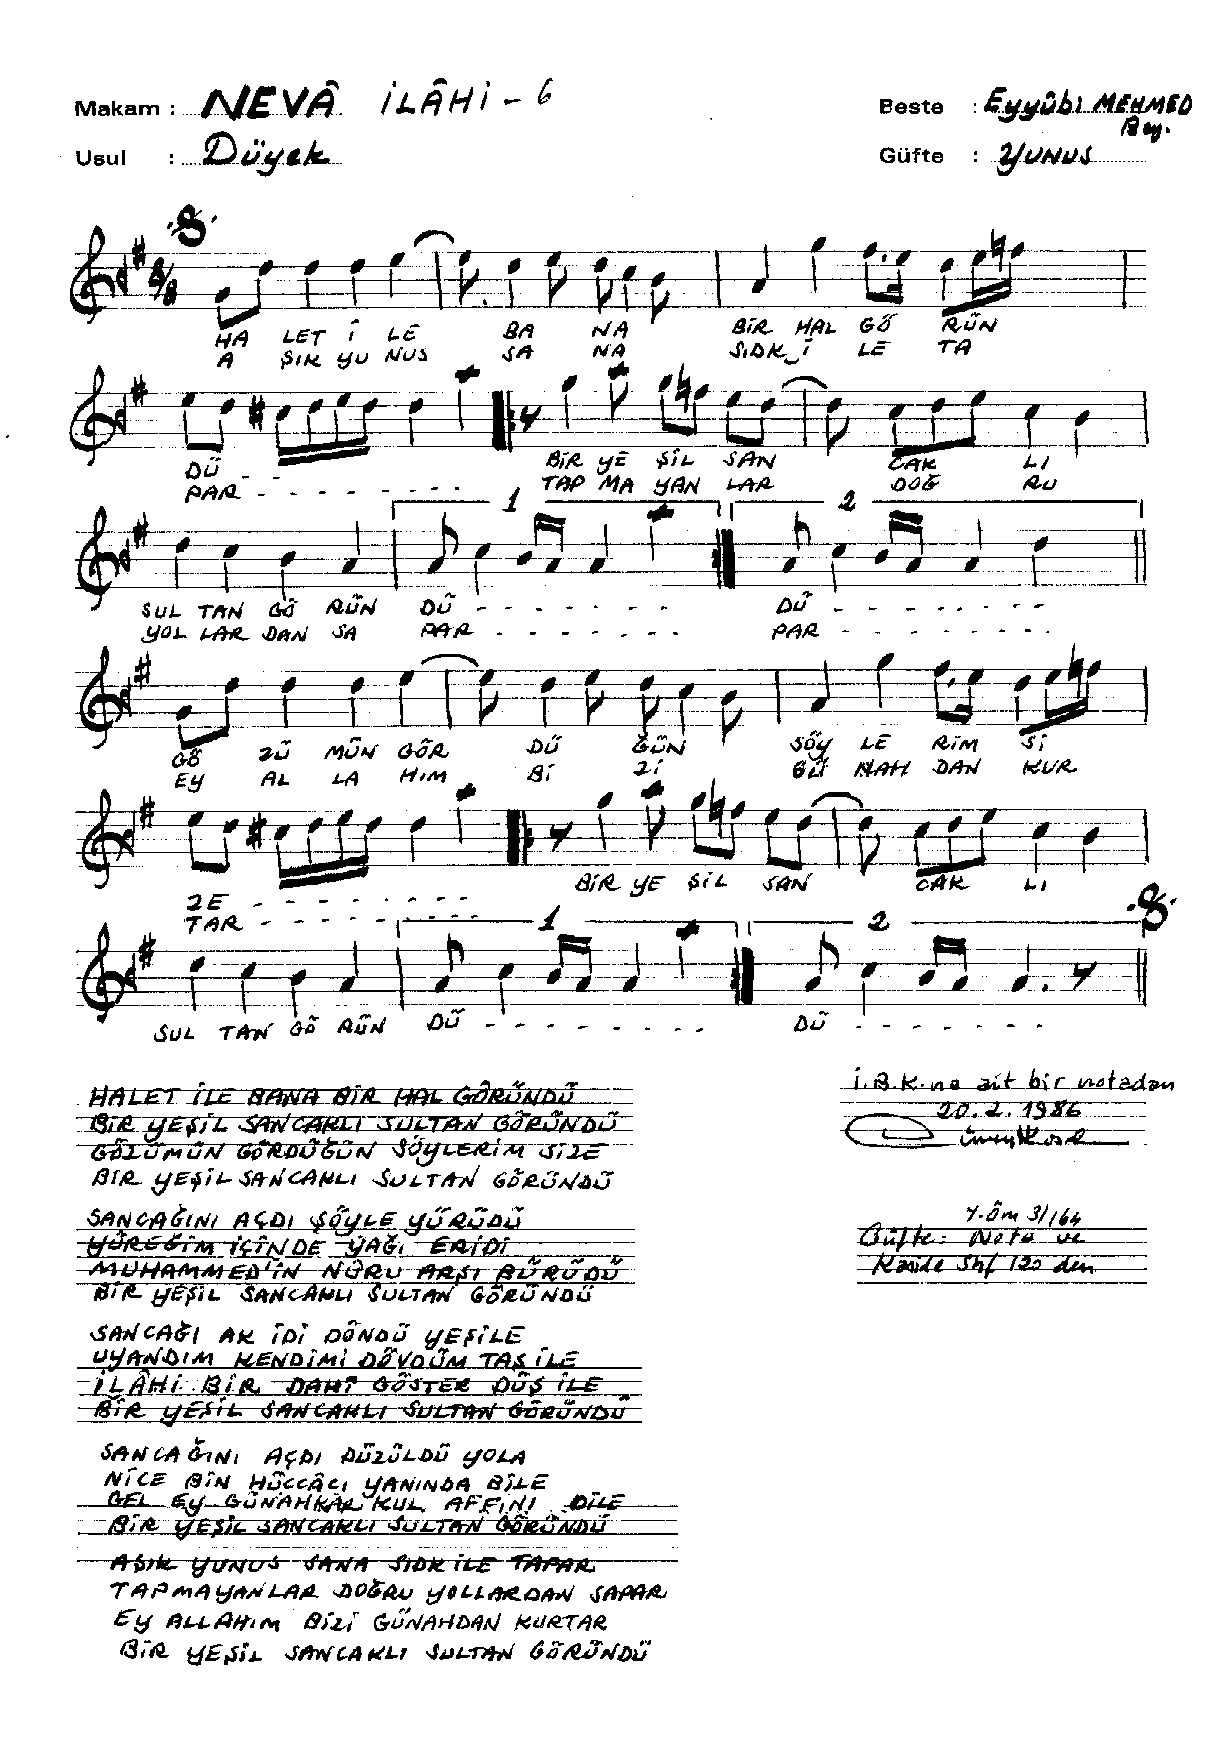 Makam : NEVÂ İLÂHİ - 6
Beste : Eyyûbi MEHMED Bey.
Usul : Düyek
Güfte : YUNUS
8/8
HA LET İ LE BA NA BİR HAL GÖ RÜN
A ŞIK YU NUS SA NA SIDK İ LE TA
DÜ - - BİR YE ŞİL SAN CAK LI
PAR - - - - - - - - TAP MA YAN LAR DOĞ RU
1 2
SUL TAN GÖ RÜN DÜ - - - - - - - DÜ - - - - - - - -
YOL LAR DAN SA PAR - - - - - - - PAR - - - - - - - -
GÖ ZÜ MÜN GÖR DÜ ĞÜN SÖY LE RİM Sİ
EY AL LA HIM Bİ Zİ GÜ NAH DAN KUR
ZE - - - - - - - - BİR YE ŞİL SAN CAK LI
TAR - - - - - - - -
1 2
SUL TAN GÖ RÜN DÜ - - - - - - - DÜ - - - - - - -
HALET İLE BANA BİR HAL GÖRÜNDÜ
BİR YEŞİL SANCAKLI SULTAN GÖRÜNDÜ
GÖZÜMÜN GÖRDÜĞÜN SÖYLERİM SİZE
BİR YEŞİL SANCAKLI SULTAN GÖRÜNDÜ
SANCAĞINI AÇDI ŞÖYLE YÜRÜDÜ
YÜREĞİM İÇİNDE YAĞI ERİDİ
MUHAMMED'İN NÛRU ARŞI BÜRÜDÜ
BİR YEŞİL SANCAKLI SULTAN GÖRÜNDÜ
SANCAĞI AK İDİ DÖNDÜ YEŞİLE
UYANDIM KENDİMİ DÖVDÜM TAŞ İLE
İLÂHİ BİR DAHİ GÖSTER DÜŞ İLE
BİR YEŞİL SANCAKLI SULTAN GÖRÜNDÜ
SANCAĞINI AÇDI DÜZÜLDÜ YOLA
NİCE BİN HÜCCÂCI YANINDA BİLE
GEL EY GÜNAHKÂR KUL AFFINI DİLE
BİR YEŞİL SANCAKLI SULTAN GÖRÜNDÜ
AŞIK YUNUS SANA SIDK İLE TAPAR
TAPMAYANLAR DOĞRU YOLLARDAN SAPAR
EY ALLAHIM BİZİ GÜNAHDAN KURTAR
BİR YEŞİL SANCAKLI SULTAN GÖRÜNDÜ
İ.B.K. na ait bir notadan
20.2.1986
Y. Öm 3/164
Güfte: Nota ve
Kaside Shf 120 den